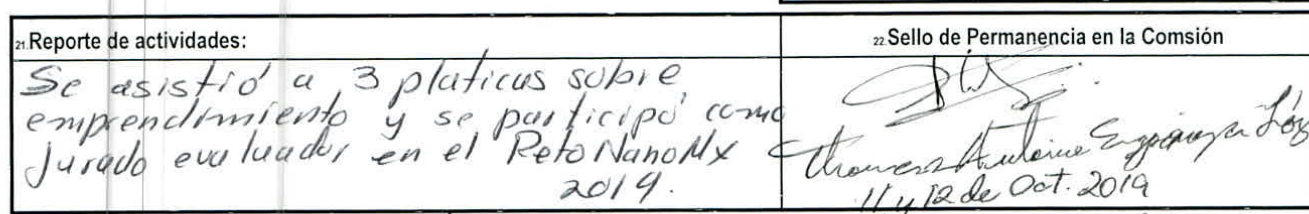 21.Reporte de actividades:
Se asistió a 3 platicas sobre
emprendimiento y se participó como
Jurado evaluador en el RetoNanoMx
2019.
22 Sello de Permanencia en la Comsión
11 y 12 de Oct. 2019